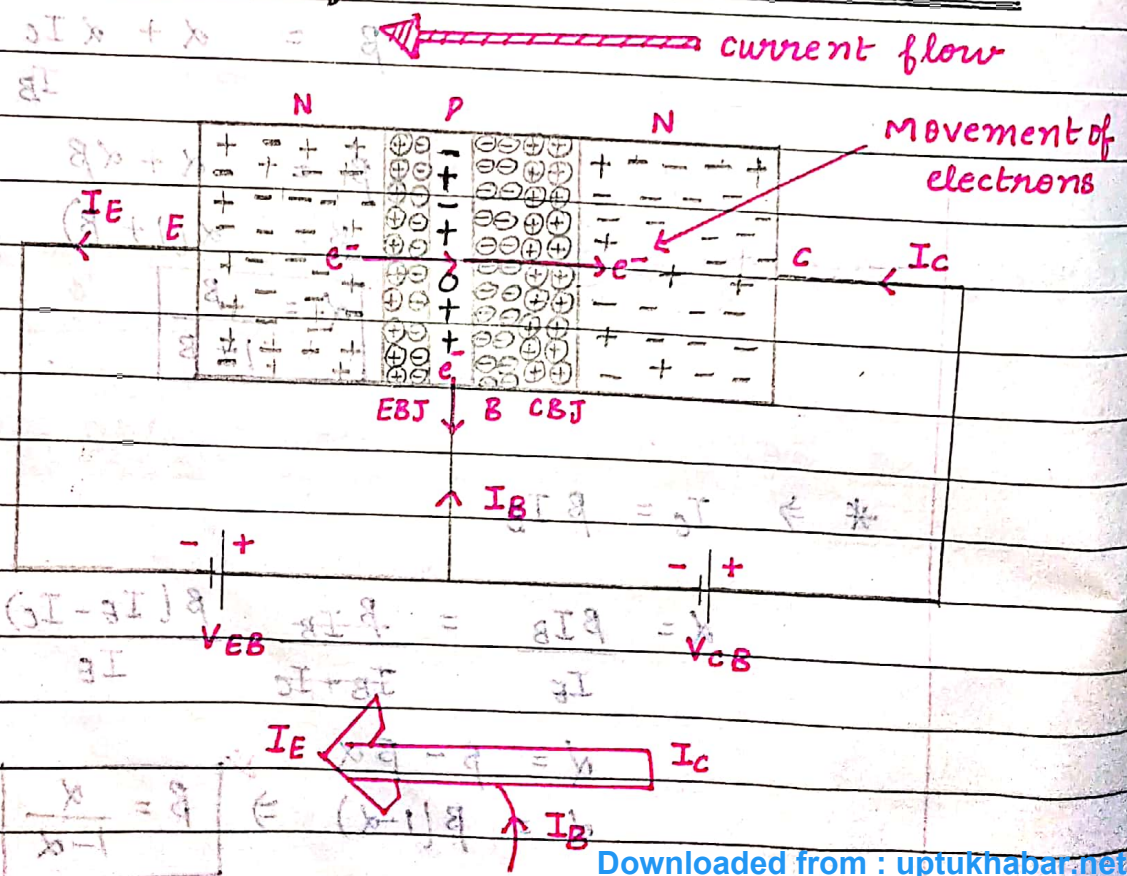 current flow
N P N
Movement of
electrons
I_E E
e⁻ e⁻
C I_C
e⁻
EBJ B CBJ
I_B
- + - +
V_EB V_CB
I_E I_C
I_B
Downloaded from : uptukhabar.net